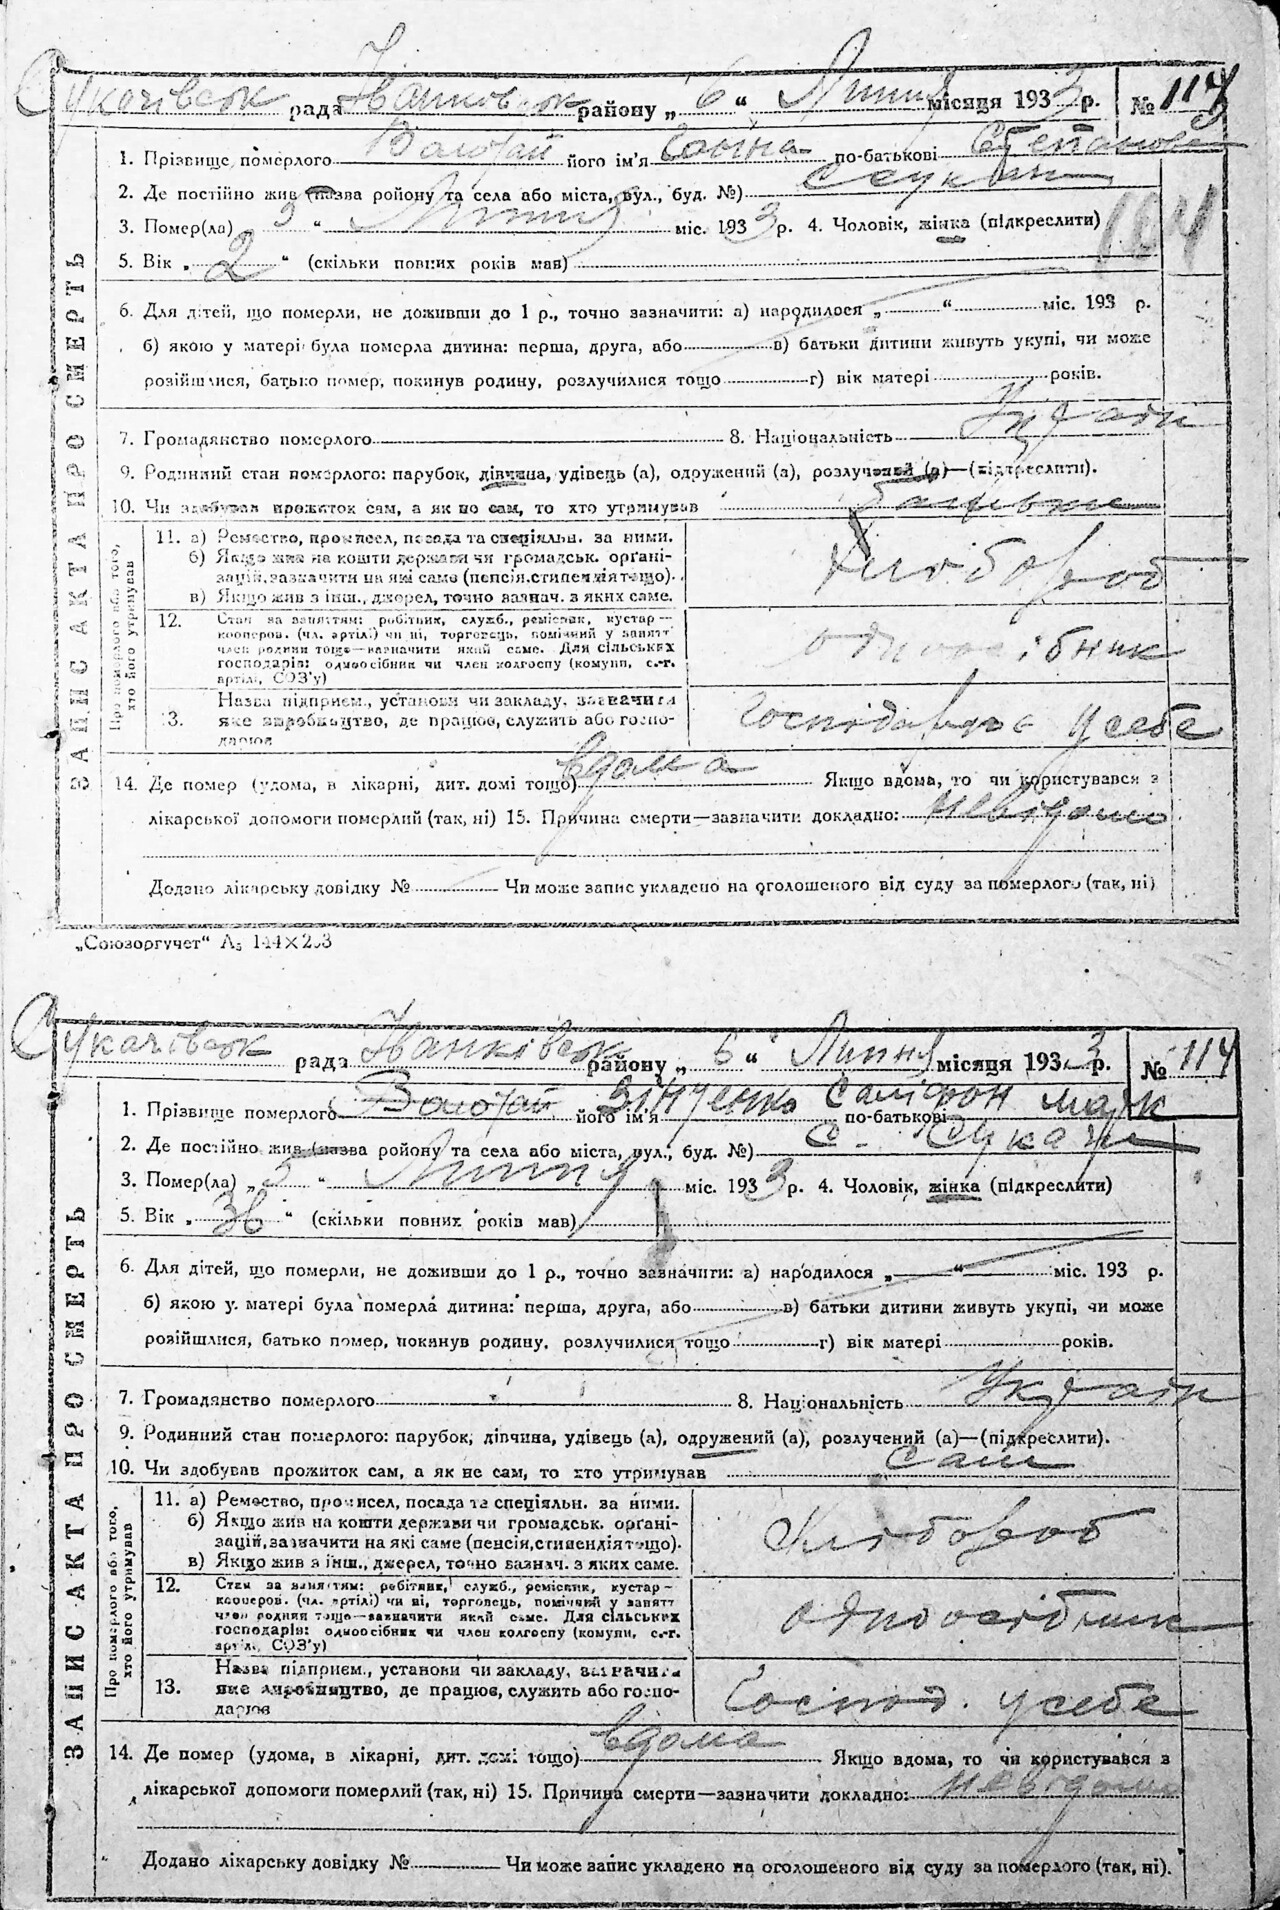 Сукачівськ рада Іванковськ району „ 6 “ Липня місяця 1933 р. № 114
1. Прізвище померлого Волохай його ім'я по-батькові Степанов
2. Де постійно жив (назва ройону та села або міста, вул., буд. №)
104
3. Помер(ла) „ “ Липня міс. 193 3 р. 4. Чоловік, жінка (підкреслити)
5. Вік „ 2 “ (скільки повних років мав)
6. Для дітей, що померли, не доживши до 1 р., точно зазначити: а) народилося „ “ міс. 193 р.
б) якою у матері була померла дитина: перша, друга, або в) батьки дитини живуть укупі, чи може
розійшлися, батько помер, покинув родину, розлучилися тощо г) вік матері років.
7. Громадянство померлого 8. Національність Україн
9. Родинний стан померлого: парубок, дівчина, удівець (а), одружений (а), розлучений (а)—(підкреслити).
10. Чи здобував прожиток сам, а як не сам, то хто утримував батьки
ЗАПИС АКТА ПРО СМЕРТЬ
Про померлого або того, хто його утримував
11. а) Ремество, промисел, посада та спеціяльн. за ними.
б) Якщо жив на кошти держави чи громадськ. орґані-
зацій, зазначити на які саме (пенсія, стипендія тощо).
в) Якщо жив з інш., джерел, точно зазнач. з яких саме.
хлібороб
12. Стан за заняттям: робітник, служб., ремісник, кустар—
кооперов. (чл. артілі) чи ні, торговець, помічний у занятт
член родини тощо—зазначити який саме. Для сільських
господарів: одноосібник чи член колгоспу (комуни, с.-г.
артілі, СОЗ'у)
одноосібник
13. Назва підприєм., установи чи закладу, зазначити
яке виробництво, де працює, служить або госпо-
дарює
Господарює у себе
14. Де помер (удома, в лікарні, дит. домі тощо) вдома Якщо вдома, то чи користувався з
лікарської допомоги померлий (так, ні) 15. Причина смерти—зазначити докладно: невідомо
Додано лікарську довідку № Чи може запис укладено на оголошеного від суду за померлого (так, ні)
„Союзоргучет“ А₅ 144×203
Сукачівськ рада Іванківськ району „ 6 “ Липня місяця 193 3 р. № 114
1. Прізвище померлого Волохай його ім'я Зінченко по-батькові
2. Де постійно жив (назва ройону та села або міста, вул., буд. №) с. Сукачі
3. Помер(ла) „ 5 “ Липня міс. 193 3 р. 4. Чоловік, жінка (підкреслити)
5. Вік „ 36 “ (скільки повних років мав)
6. Для дітей, що померли, не доживши до 1 р., точно зазначити: а) народилося „ “ міс. 193 р.
б) якою у матері була померла дитина: перша, друга, або в) батьки дитини живуть укупі, чи може
розійшлися, батько помер, покинув родину, розлучилися тощо г) вік матері років.
7. Громадянство померлого 8. Національність Україн
9. Родинний стан померлого: парубок, дівчина, удівець (а), одружений (а), розлучений (а)—(підкреслити).
10. Чи здобував прожиток сам, а як не сам, то хто утримував Сам
ЗАПИС АКТА ПРО СМЕРТЬ
Про померлого або того, хто його утримував
11. а) Ремество, промисел, посада та спеціяльн. за ними.
б) Якщо жив на кошти держави чи громадськ. орґані-
зацій, зазначити на які саме (пенсія, стипендія тощо).
в) Якщо жив з інш., джерел, точно зазнач. з яких саме.
Хлібороб
12. Стан за заняттям: робітник, служб., ремісник, кустар—
кооперов. (чл. артілі) чи ні, торговець, помічний у занятт
член родини тощо—зазначити який саме. Для сільських
господарів: одноосібник чи член колгоспу (комуни, с.-г.
артілі, СОЗ'у)
одноосібник
13. Назва підприєм., установи чи закладу, зазначити
яке виробництво, де працює, служить або госпо-
дарює
Господ. у себе
14. Де помер (удома, в лікарні, дит. домі тощо) вдома Якщо вдома, то чи користувався з
лікарської допомоги померлий (так, ні) 15. Причина смерти—зазначити докладно: невідомо
Додано лікарську довідку № Чи може запис укладено на оголошеного від суду за померлого (так, ні).